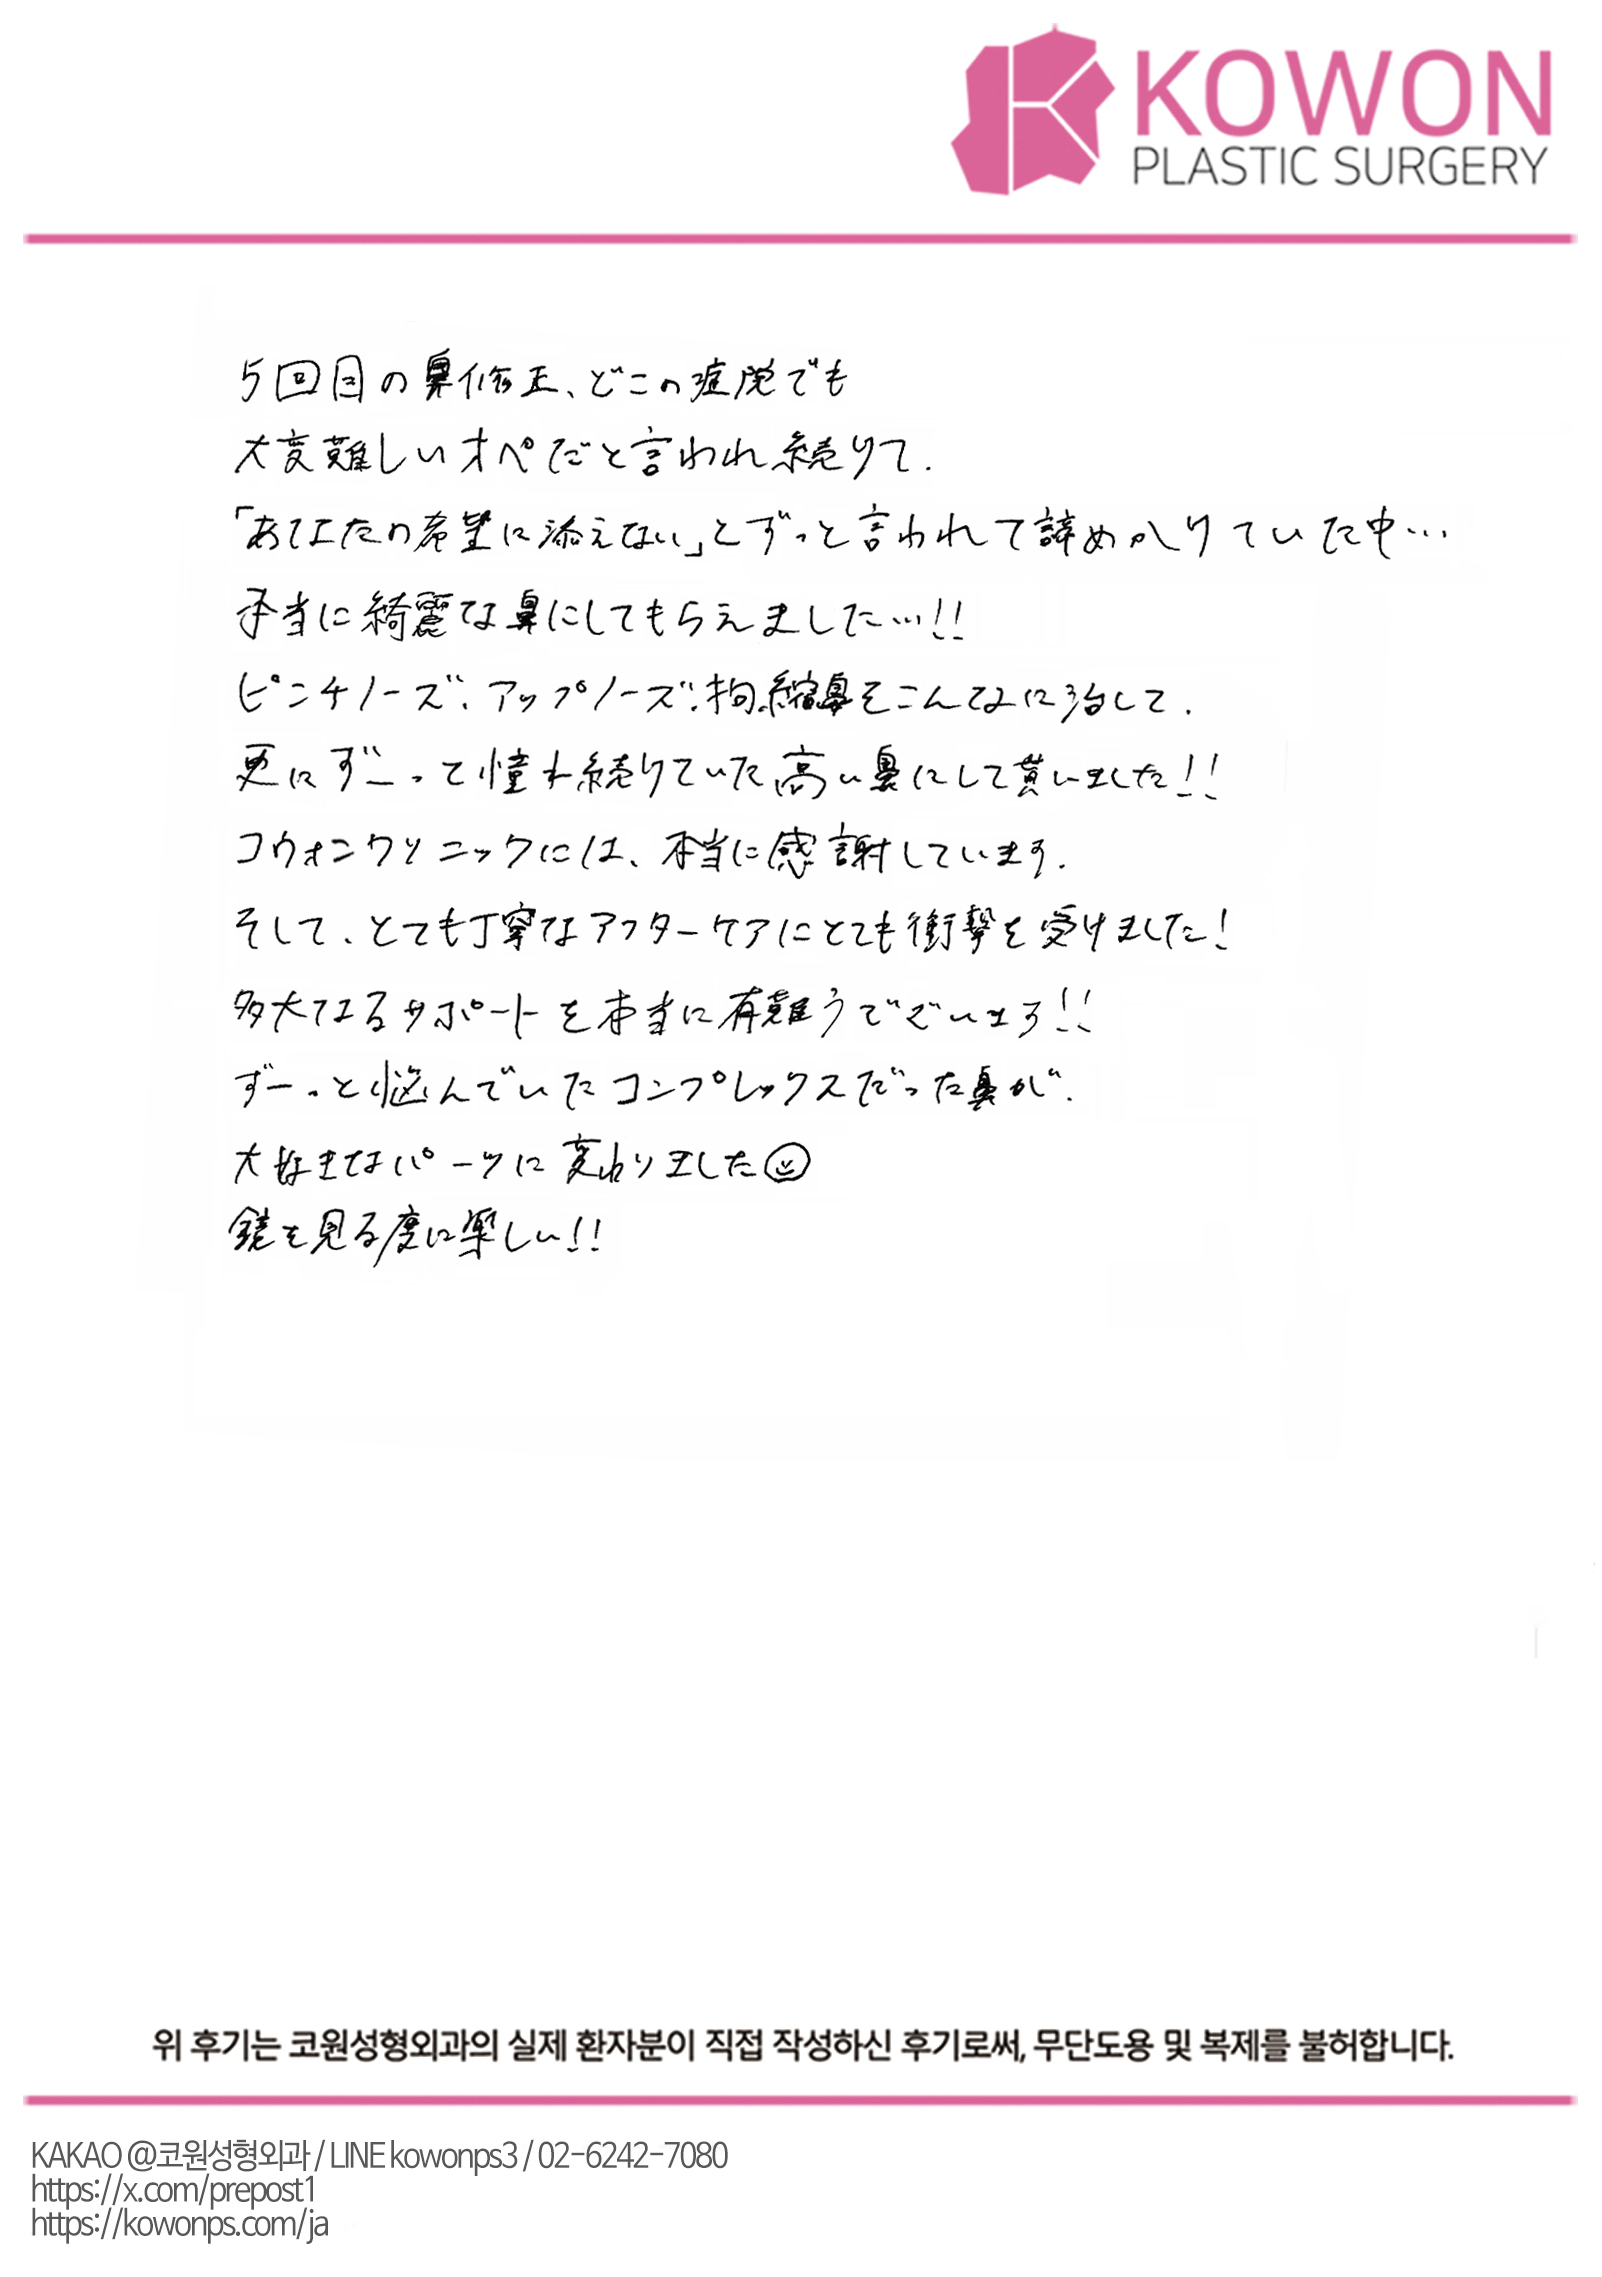 KOWON
PLASTIC SURGERY
5回目の鼻修正、どこの病院でも
大変難しいオペだと言われ続けて、
「あなたの希望に添えない」とずっと言われて諦めかけていた中…
本当に綺麗な鼻にしてもらえました…!!
ピンチノーズ、アップノーズ、拘縮鼻をこんなに治して、
更にずーっと憧れ続けていた高い鼻にして貰いました!!
コウォンクリニックには、本当に感謝しています。
そして、とても丁寧なアフターケアにとても衝撃を受けました!
多大なるサポートを本当に有難うございます!!
ずーっと悩んでいたコンプレックスだった鼻が、
大好きなパーツに変わりました☺
鏡を見る度に楽しい!!
위 후기는 코원성형외과의 실제 환자분이 직접 작성하신 후기로써, 무단도용 및 복제를 불허합니다.
KAKAO @코원성형외과 / LINE kowonps3 / 02-6242-7080
https://x.com/prepost1
https://kowonps.com/ja